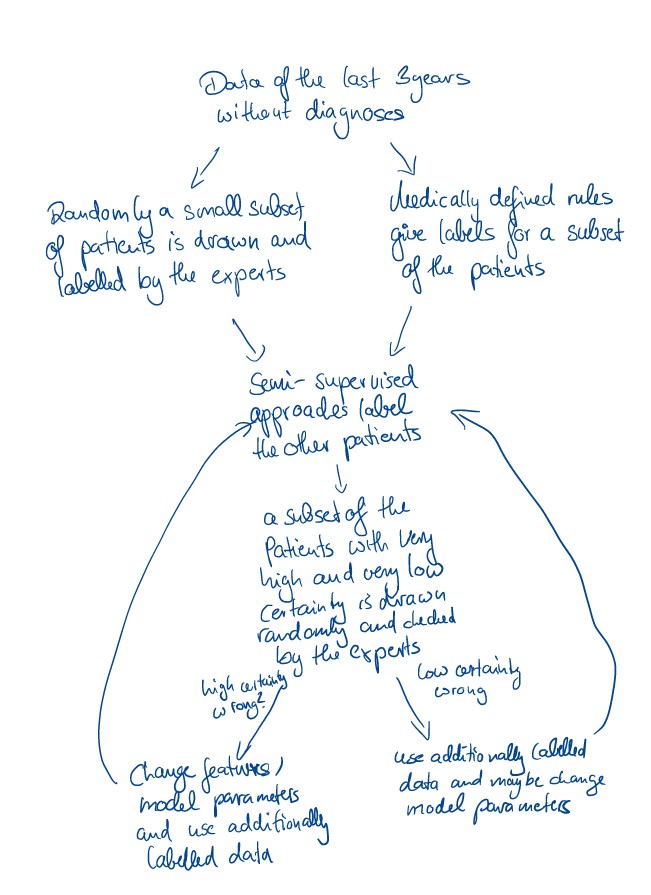 Data of the last 3 years
without diagnoses
Randomly a small subset
of patients is drawn and
labelled by the experts
Medically defined rules
give labels for a subset
of the patients
Semi-supervised
approaches label
the other patients
a subset of the
Patients with very
high and very low
certainty is drawn
randomly and checked
by the experts
high certainty
wrong?
low certainty
wrong
Change features,
model parameters
and use additionally
labelled data
use additionally labelled
data and maybe change
model parameters